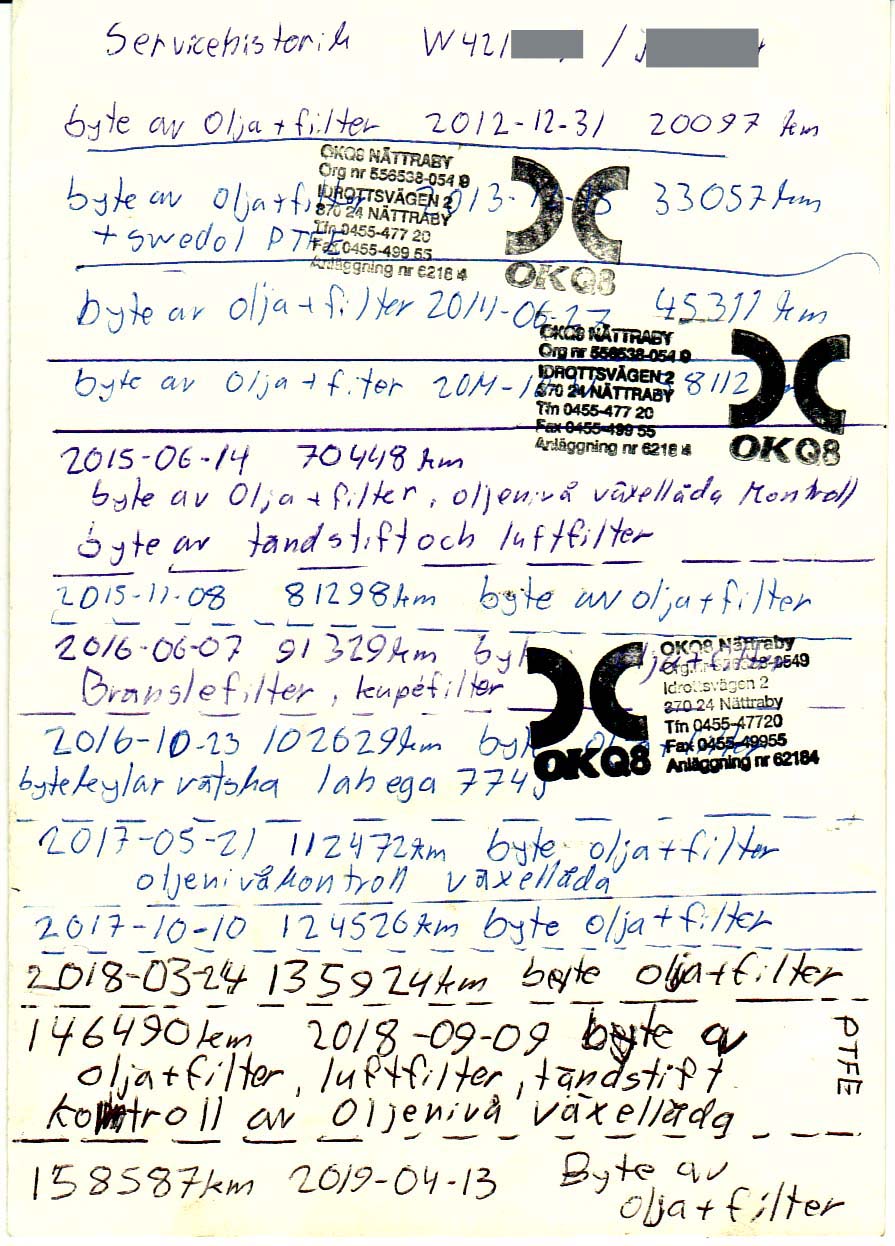 Servicehistorik W421 /
byte av olja + filter 2012-12-31 20097 km
OKQ8 NÄTTRABY
Org nr 556538-054 9
IDROTTSVÄGEN 2
370 24 NÄTTRABY
Tfn 0455-477 20
Fax 0455-499 55
Anläggning nr 6218 4
OKQ8
byte av olja + filter 2013-12-15 33057 km
+ swedol PTFE
byte av olja + filter 2014-06-27 45311 km
OKQ8 NÄTTRABY
Org nr 556538-054 9
IDROTTSVÄGEN 2
370 24 NÄTTRABY
Tfn 0455-477 20
Fax 0455-499 55
Anläggning nr 6218 4
OKQ8
byte av olja + filter 8112
2015-06-14 70448 km
byte av olja + filter, oljenivå växellåda kontroll
byte av tändstift och luftfilter
2015-11-08 81298 km byte av olja + filter
2016-06-07 91329 km byte olja + filter
Bränslefilter, kupéfilter
OKQ8
OKQ8 Nättraby
Org.nr 556538-0549
Idrottsvägen 2
370 24 Nättraby
Tfn 0455-47720
Fax 0455-49955
Anläggning nr 62184
2016-10-23 102629 km byte olja + filter
byte kylar vätska lahega 774
2017-05-21 112472 km byte olja + filter
oljenivåkontroll växellåda
2017-10-10 124526 km byte olja + filter
2018-03-24 135924 km byte olja + filter
146490 km 2018-09-09 byte av
olja + filter, luftfilter, tändstift
kontroll av oljenivå växellåda
PTFE
158587 km 2019-04-13 Byte av
olja + filter